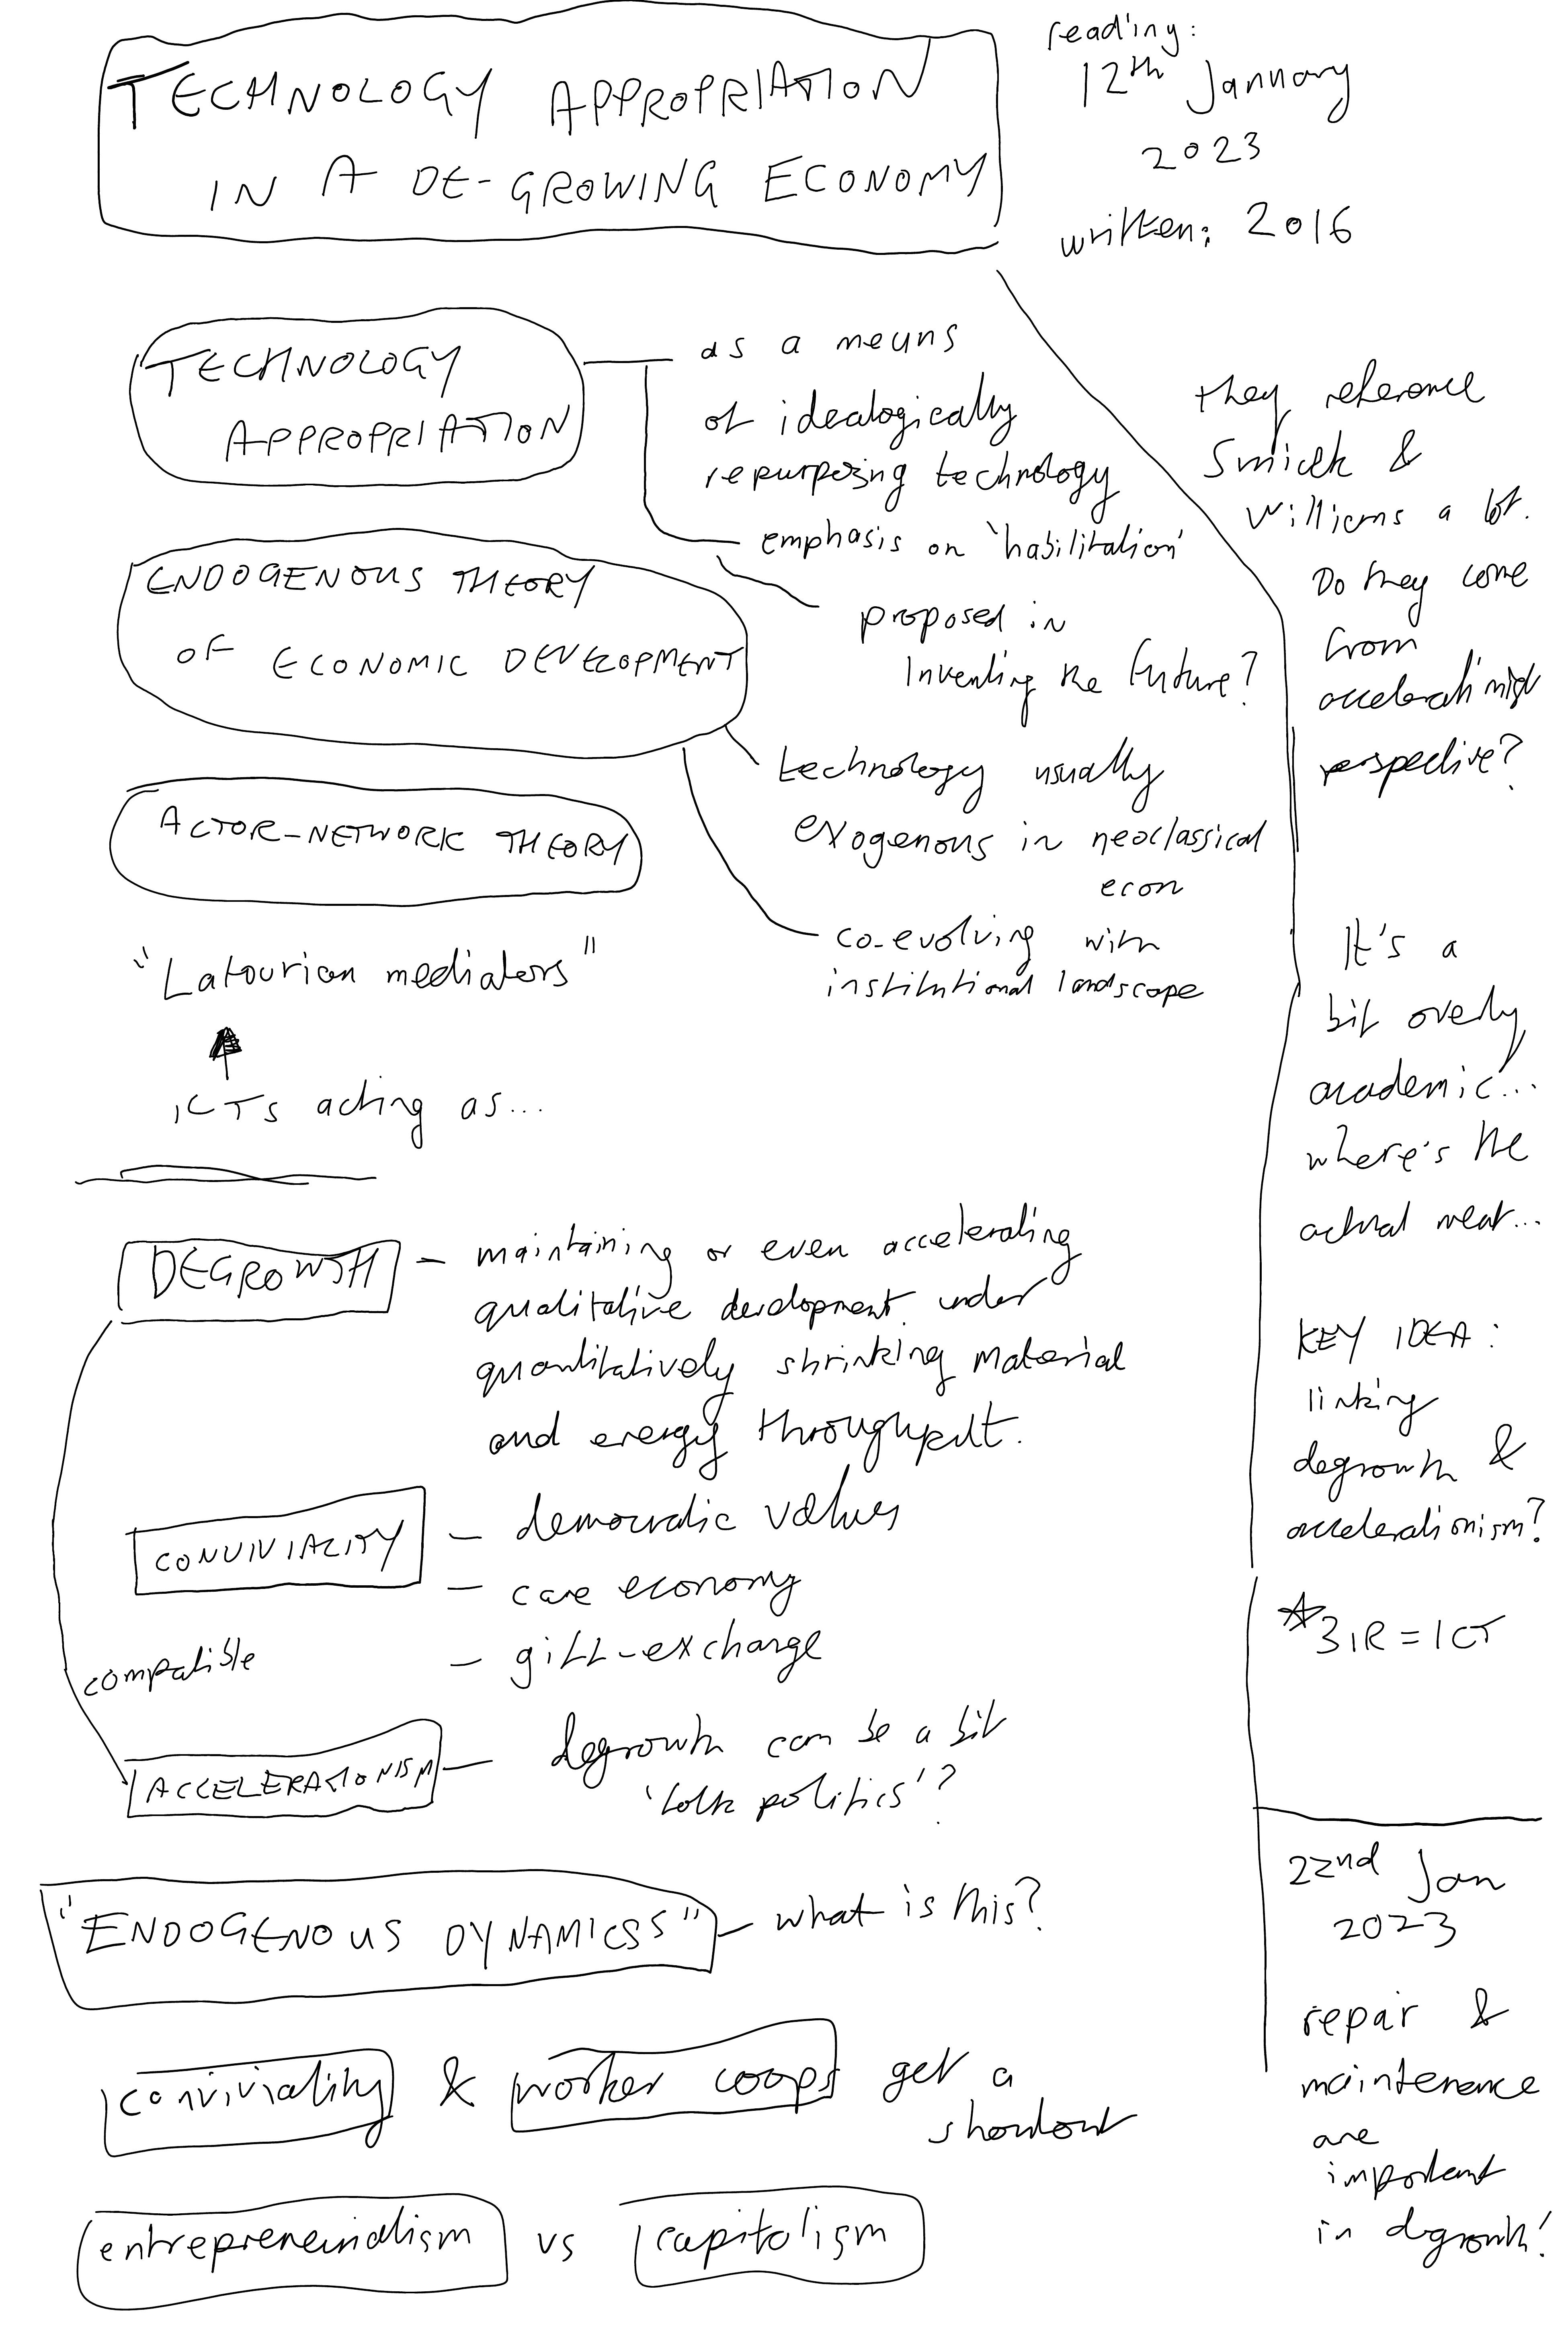 TECHNOLOGY APPROPRIATION
IN A DE-GROWING ECONOMY
reading:
12th January
2023
written: 2016
TECHNOLOGY
APPROPRIATION
as a means
of idealogically
repurposing technology
emphasis on 'habilitation'
proposed in
Inventing the Future?
ENDOGENOUS THEORY
OF ECONOMIC DEVELOPMENT
technology usually
exogenous in neoclassical
econ
co-evolving with
institutional landscape
ACTOR-NETWORK THEORY
"Latourian mediators"
ICTs acting as...
DEGROWTH - maintaining or even accelerating
qualitative development under
quantitatively shrinking material
and energy throughput.
CONVIVIALITY - democratic values
- care economy
- gift-exchange
compatible
ACCELERATIONISM - degrowth can be a bit
'folk politics'?
"ENDOGENOUS DYNAMICSS" - what is this?
conviviality & worker coops get a
shoutout
entrepreneurialism vs capitalism
they reference
Srnicek &
Williams a lot.
Do they come
from
accelerationist
perspective?
It's a
bit overly
academic...
where's the
actual meat...
KEY IDEA:
linking
degrowth &
accelerationism?
*3IR = ICT
22nd Jan
2023
repair &
maintenence
are
important
in degrowth!